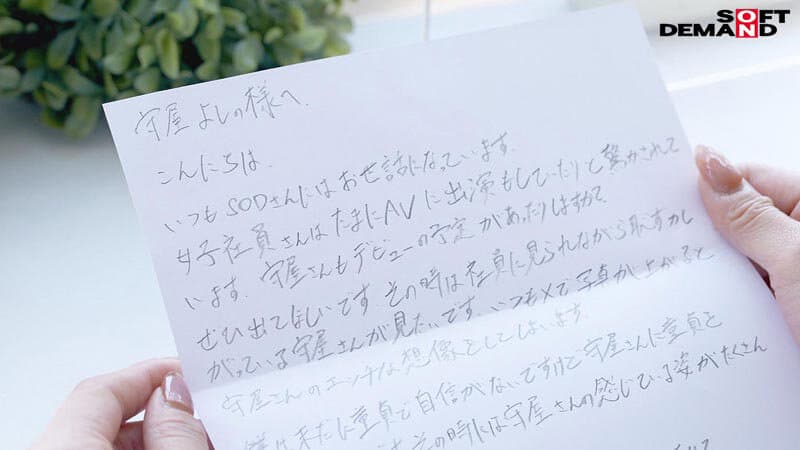 SOFT
DEMAND
守屋よしの様へ
こんにちは。
いつもSODさんにはお世話になっています。
女子社員さんはたまにAVに出演もしていたりと驚かされて
います。守屋さんもデビューの予定があったりしますか？
ぜひ出てほしいです。その時は社員に見られながら恥ずかし
がっている守屋さんが見たいです。いつもXで写真が上がると
守屋さんのエッチな想像をしてしまいます。
未だに童貞で自信がないですけど守屋さんに童貞を
その時には守屋さんの感じている姿がたくさん